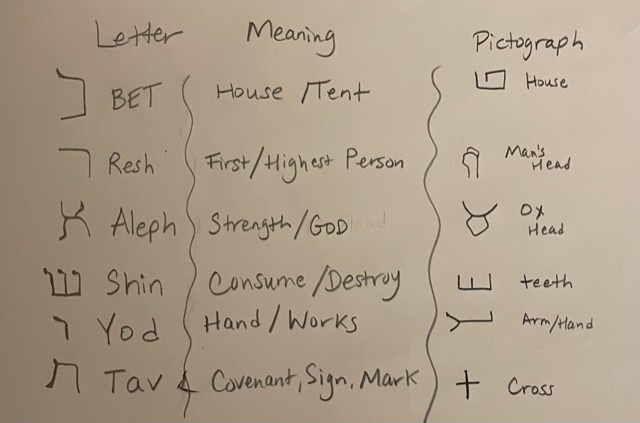 Letter Meaning Pictograph
ב BET House /Tent House
ר Resh First/Highest Person Man's Head
א Aleph Strength/GOD Ox Head
ש Shin Consume/Destroy teeth
י Yod Hand/Works Arm/Hand
ת Tav Covenant, Sign, Mark Cross